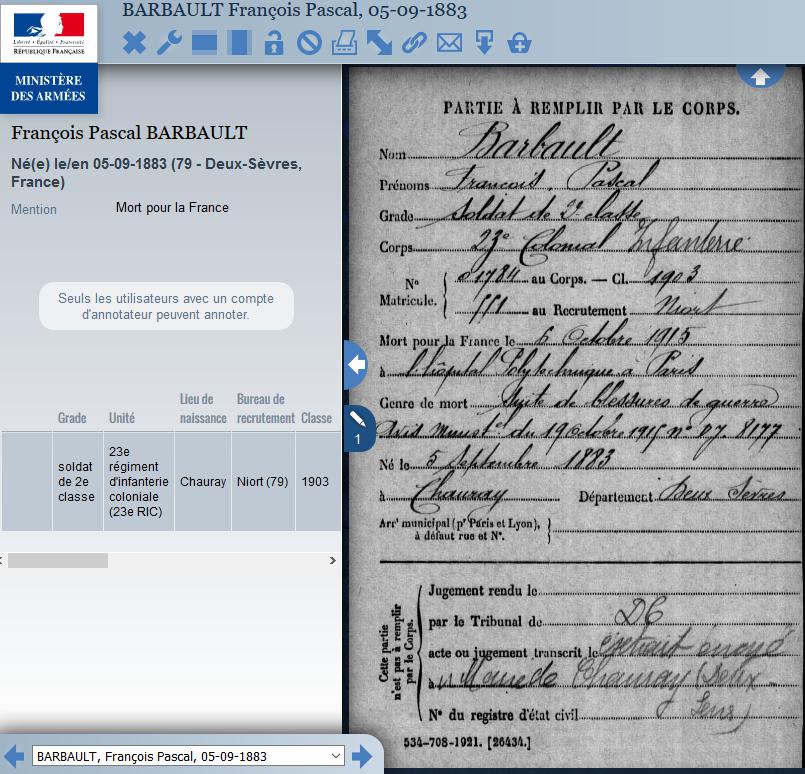 BARBAULT François Pascal, 05-09-1883
Liberté • Égalité • Fraternité
RÉPUBLIQUE FRANÇAISE
MINISTÈRE
DES ARMÉES
François Pascal BARBAULT
Né(e) le/en 05-09-1883 (79 - Deux-Sèvres,
France)
Mention Mort pour la France
Seuls les utilisateurs avec un compte
d'annotateur peuvent annoter.
Grade Unité Lieu de naissance Bureau de recrutement Classe
soldat de 2e classe 23e régiment d'infanterie coloniale (23e RIC) Chauray Niort (79) 1903
BARBAULT, François Pascal, 05-09-1883
1
PARTIE À REMPLIR PAR LE CORPS.
Nom Barbault
Prénoms Francois, Pascal
Grade Soldat de 2e classe
Corps 23e Colonial Infanterie
N° Matricule. 01784 au Corps. — Cl. 1903
551 au Recrutement Niort
Mort pour la France le 6 Octobre 1915
à l'hôpital Polytechnique à Paris
Genre de mort Suite de blessures de guerre
Avis Minist el du 19 Octobre 1915 n° 8177
Né le 5 Septembre 1883
à Chauray Département Deux Sèvres
Arr' municipal (pr Paris et Lyon),
à défaut rue et N°.
Cette partie
n'est pas à remplir
par le Corps.
Jugement rendu le
par le Tribunal de DC
acte ou jugement transcrit le extrait envoyé
à Chauray (Deux
N° du registre d'état civil
534-708-1921. [26434.]